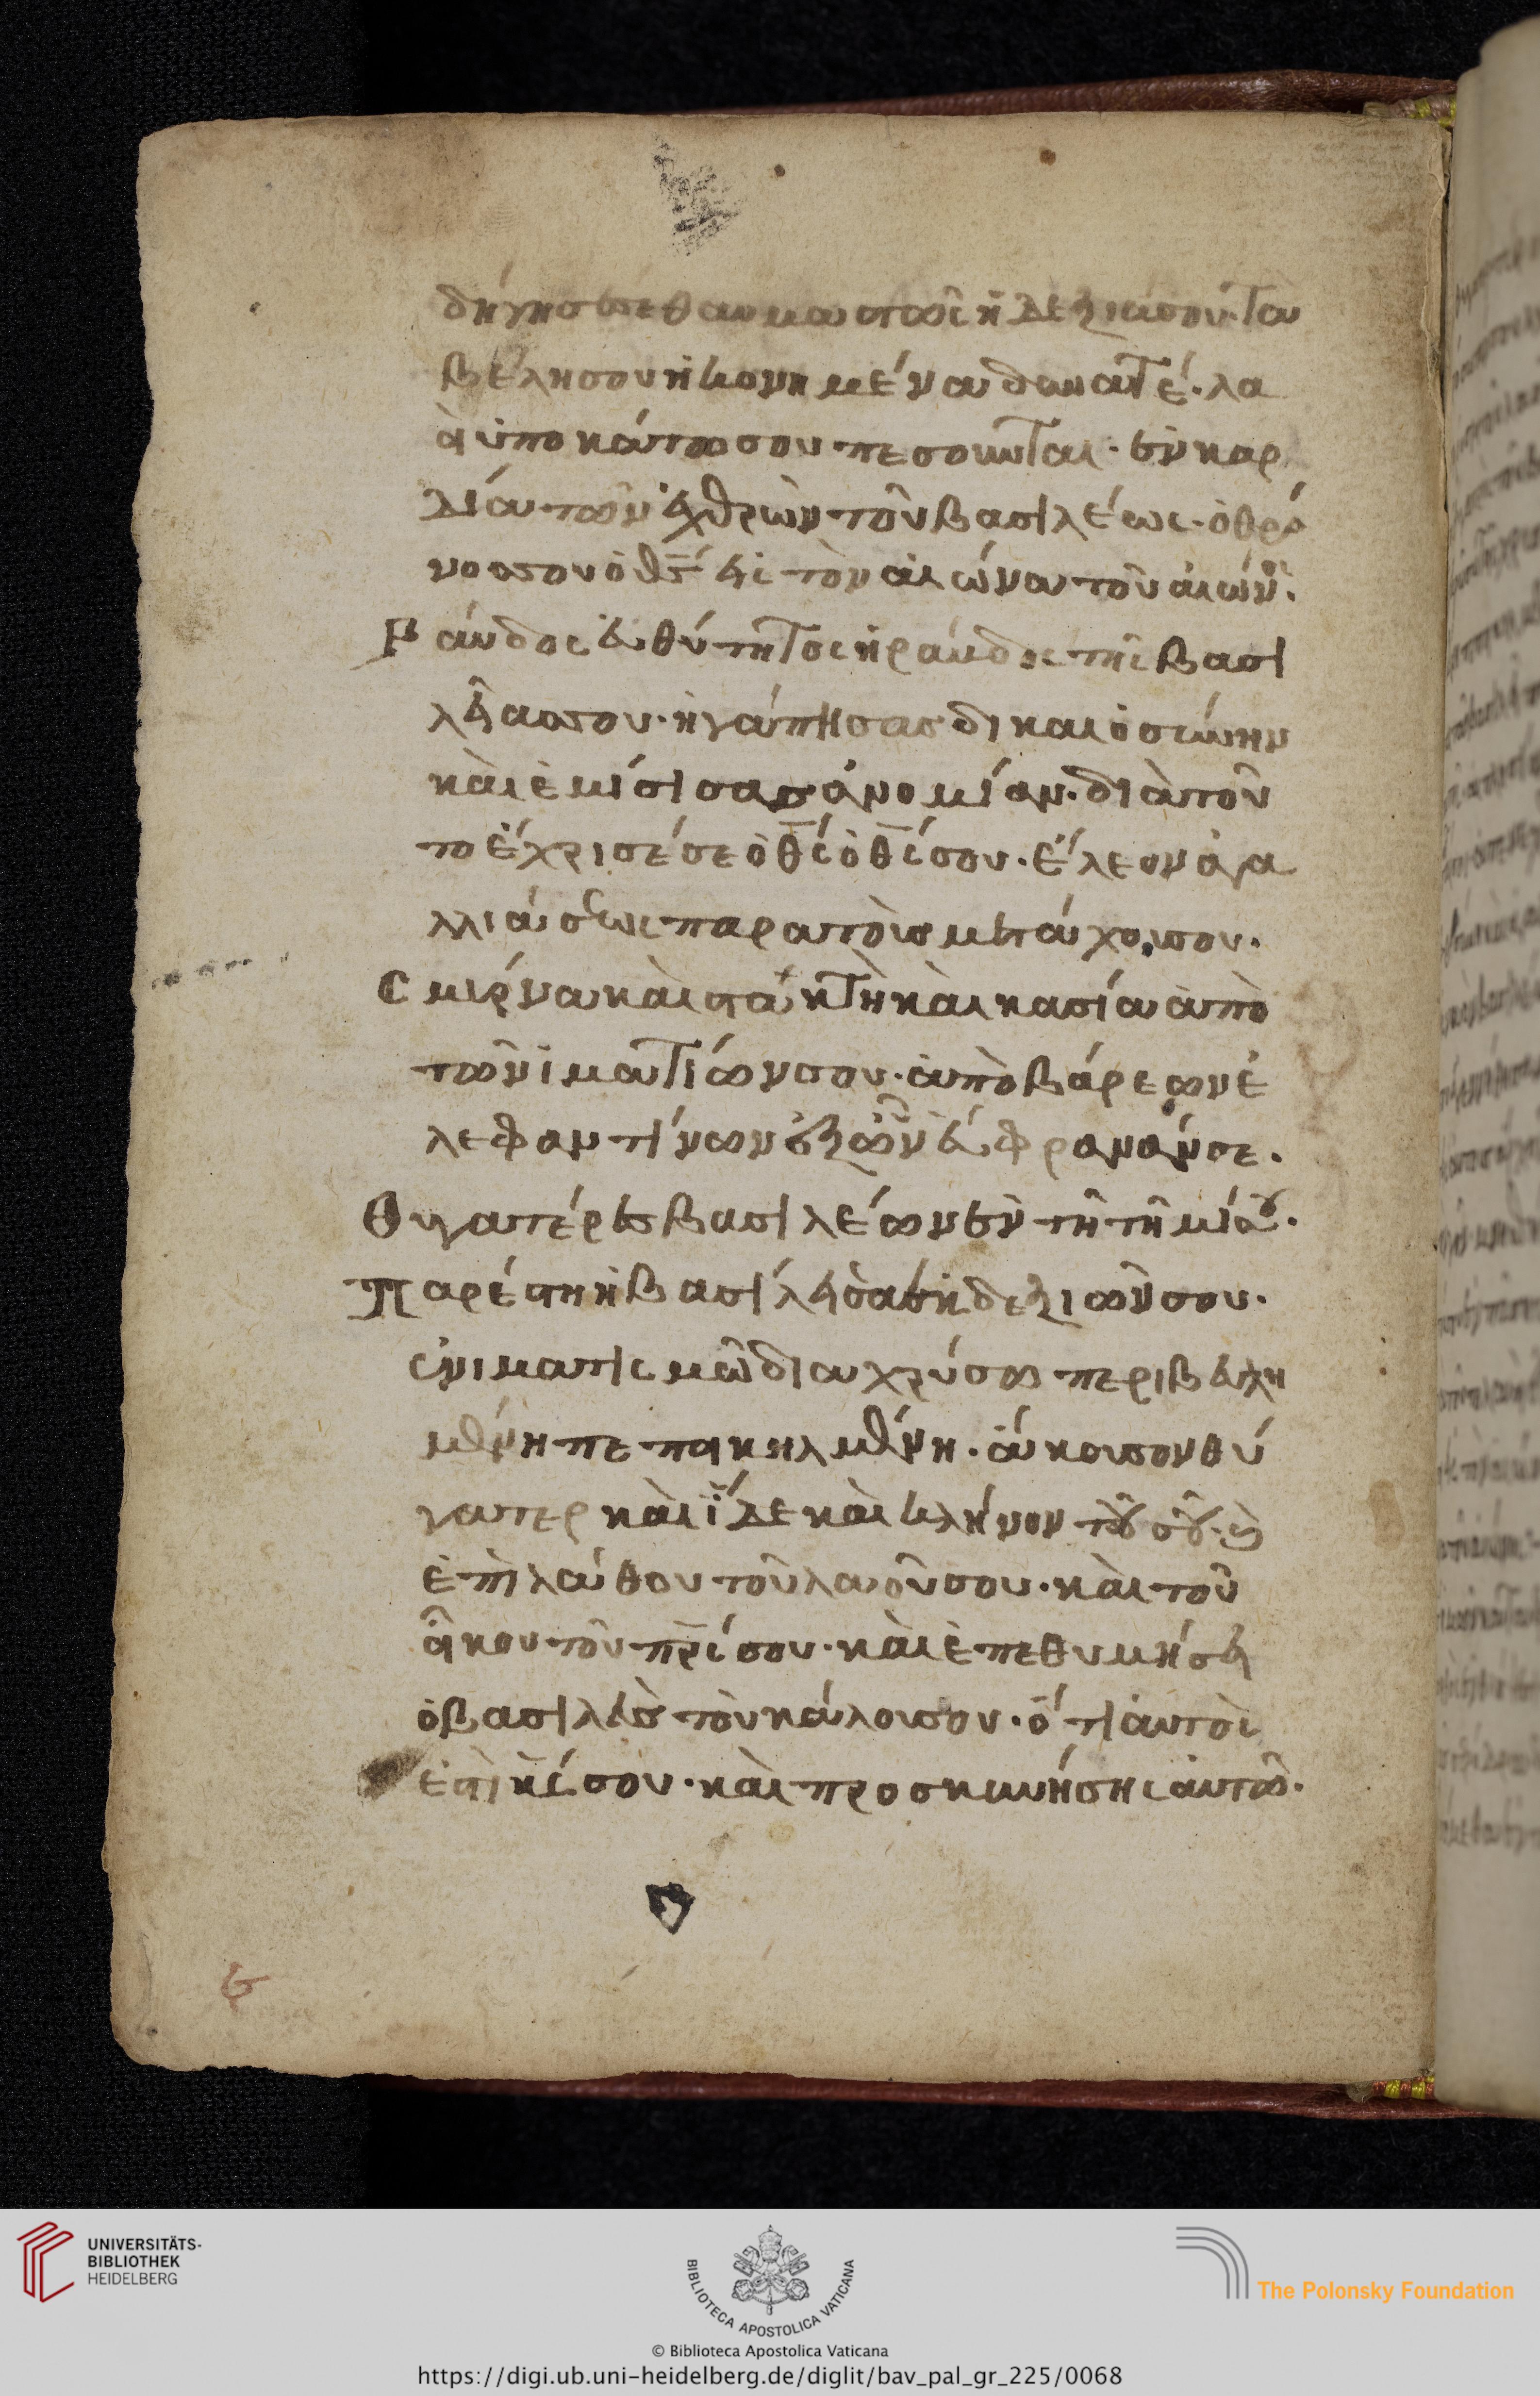 δηγησει σε θαυμαστῶς ἡ δεξιά σου. τὰ
βέλη σου ἠκονημένα δυνατέ. λα
οὶ ὑποκάτω σου πεσοῦνται. ἐν καρ
δία τῶν ἐχθρῶν τοῦ βασιλέως. ὁ θρό
νοσ σου ὁ θς εἰς τὸν αἰῶνα τοῦ αἰών.
Ράυδος ἐυθύτητος ἡ ράυδος τῆς βασι
λείασ σου. ἠγάπησας δικαιὁσύνην
καὶ ἐμίσισας ἀνομίαν. διὰ τοῦ
το ἔχρισέ σε ὁ θς ὁ θς σου. ἔλεον ἀγα
λλιάσεως παρα τοὺς μετόχους σου.
Σμιρνα καὶ στακτὴ καὶ κασία ἀπὸ
τῶν ἱματίων σου. ἀπὸ βάρεων ἐ
λεφαντίνων ἐξ ὧν ἐυφρανάν σε.
Θυγατέρες βασιλέων ἐν τῆ τῆμῆ σου.
Παρέστη ἡ βασίλεισα ἐκ δεξιῶν σου.
ἐν ιματισμῶ διαχρύσω περιβεβλη
μένη πεποικηλμένη. άκουσον θύ
γατερ καὶ ἴδε καὶ κλήνον τὸ οὖς σου. καὶ
ἐπιλάθου τοῦ λαοῦ σου. καὶ τοῦ
οἴκου τοῦ πρς σου. καὶ ἐπεθυμήσει
ὁ βασιλεὺς τοῦ κάλους σου. ὅτι ἀυτὸς
ἐστὶ κς σου. καὶ προσκυνήσης ἀυτῶ.
UNIVERSITÄTS-
BIBLIOTHEK
HEIDELBERG
BIBLIOTECA APOSTOLICA VATICANA
The Polonsky Foundation
© Biblioteca Apostolica Vaticana
https://digi.ub.uni-heidelberg.de/diglit/bav_pal_gr_225/0068